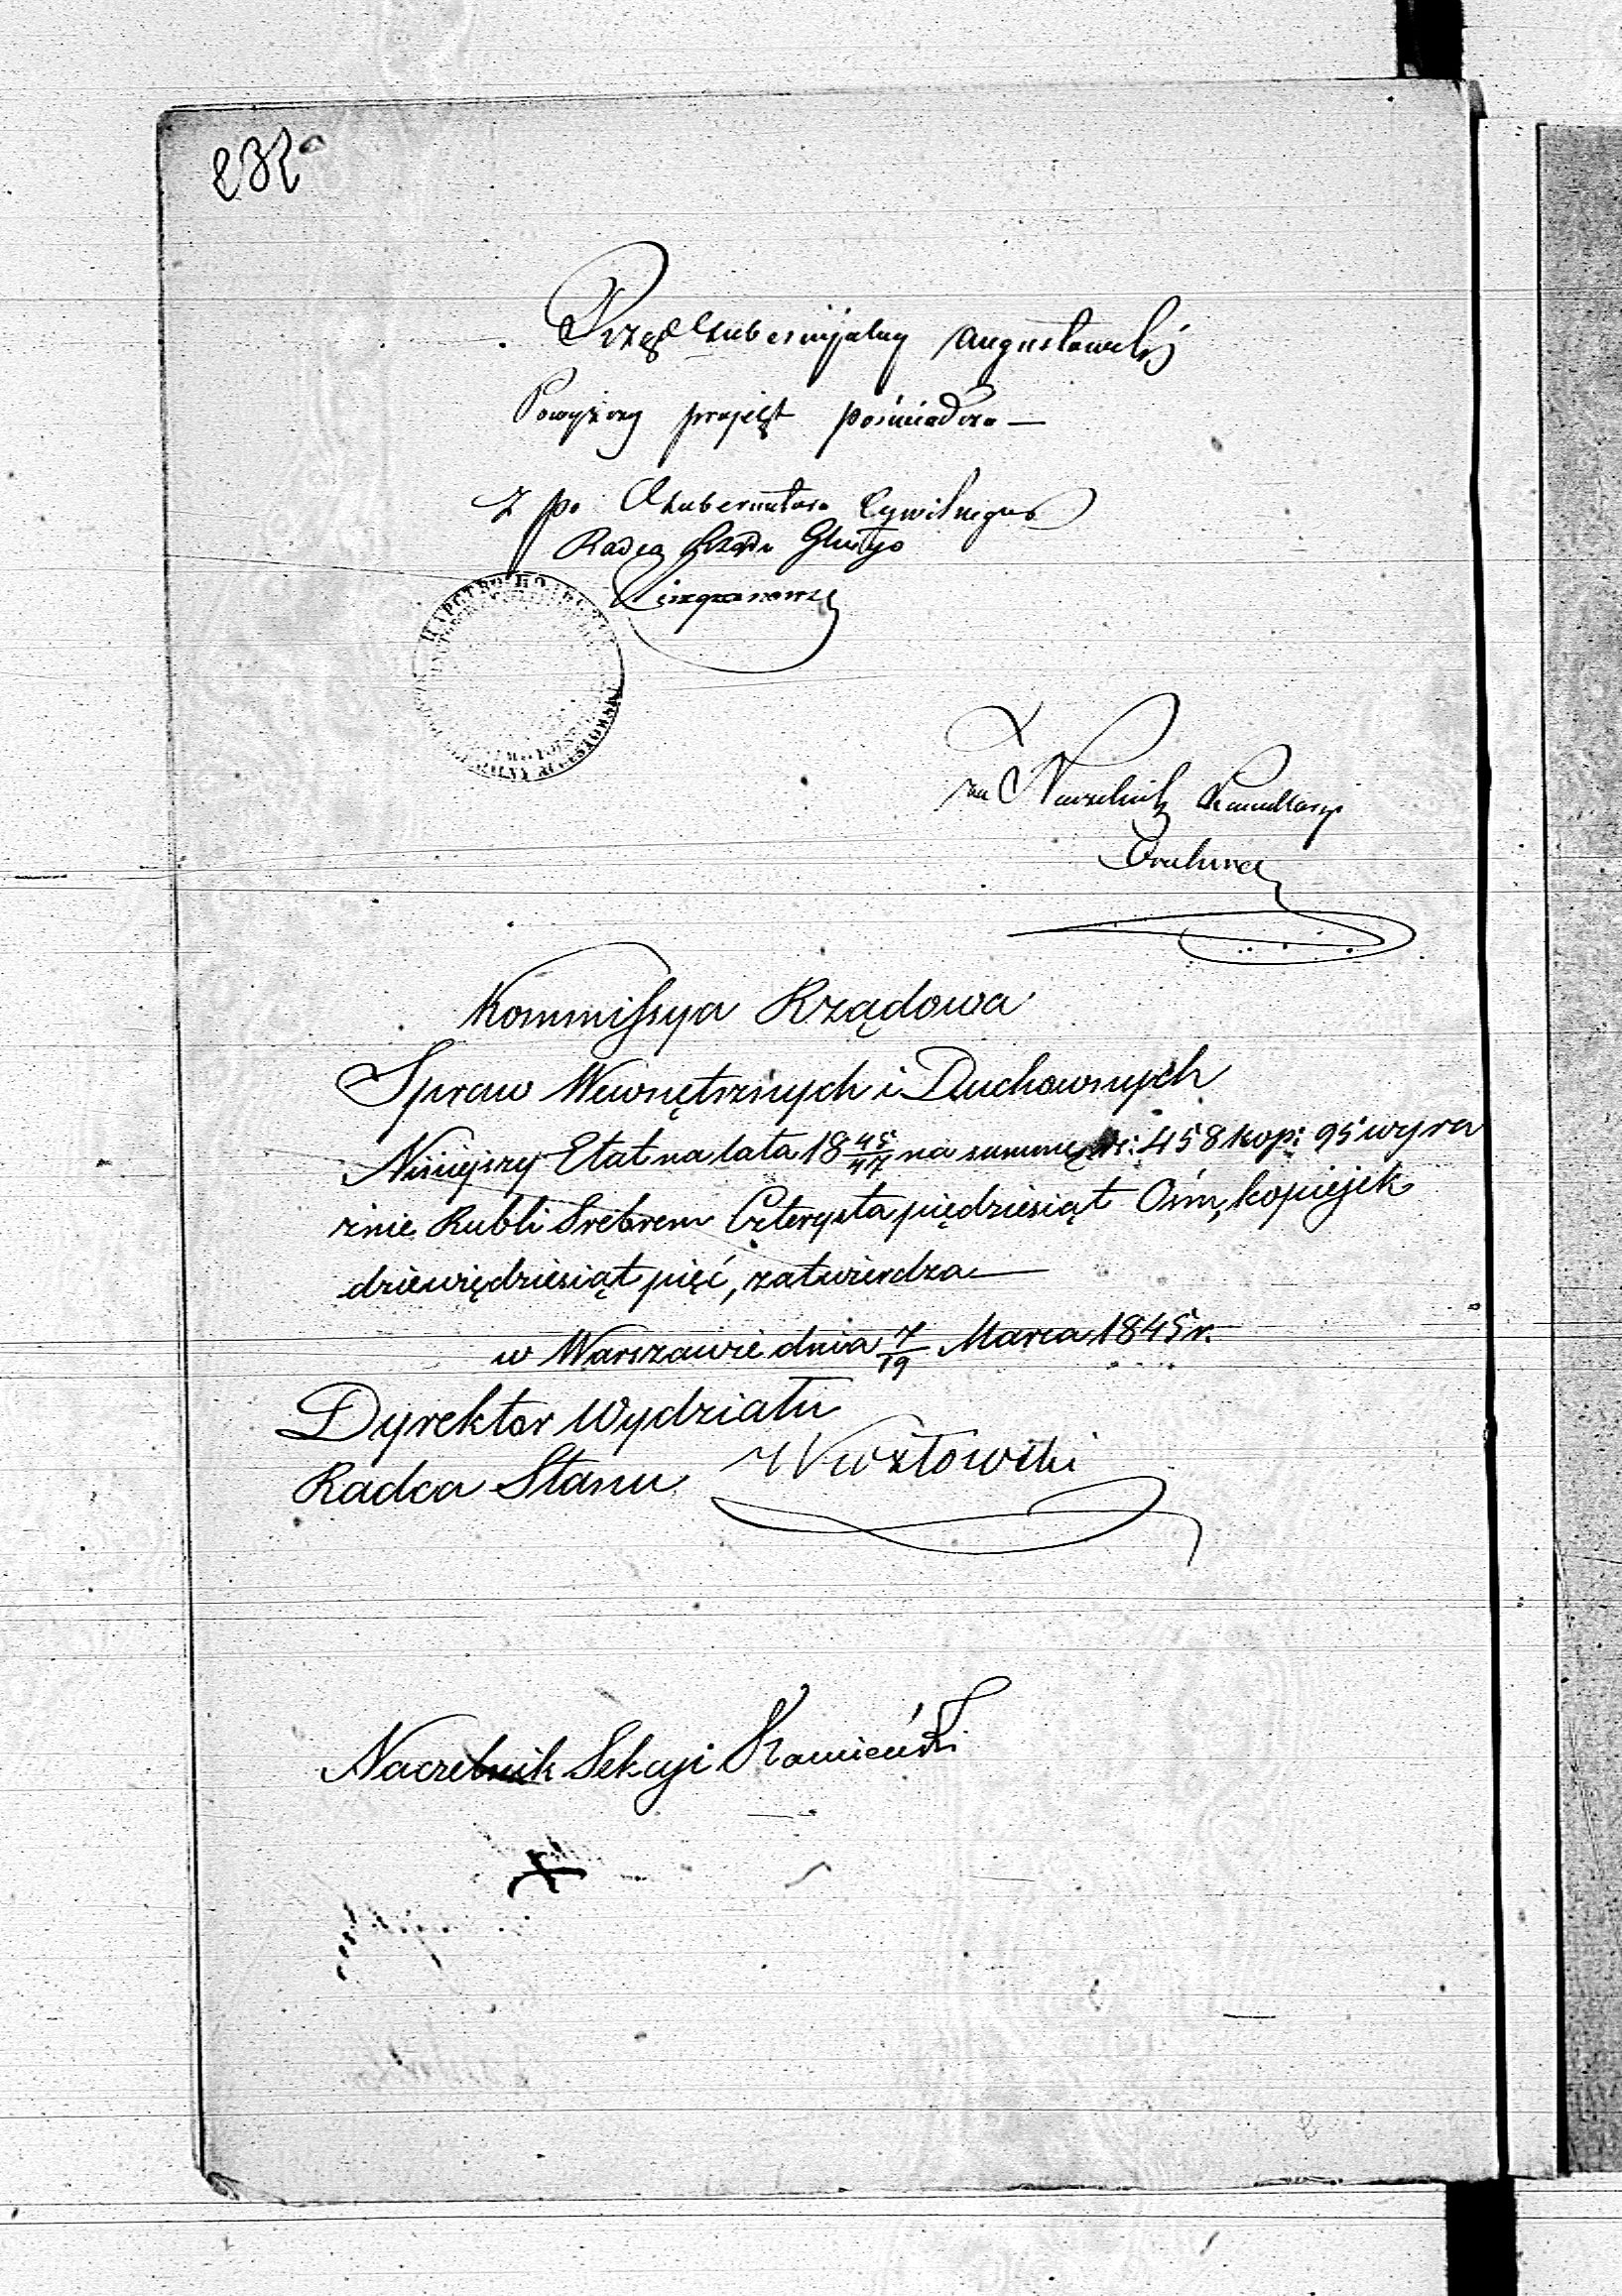 232
Rząd Gubernijalny Augustowski
Powyższy projekt poświadcza —
Z po Gubernatora Cywilnego
Radca
za Naczelnik Kancellaryi
Kommissya Rządowa
Spraw Wewnętrznych i Duchownych
Niniejszy Etat na lata 18 45/47 na summę rs: 458 kop: 95 wyra
źnie Rubli Srebrem Czterysta piędziesiąt Ośm, kopiejek
dziewiędziesiąt pięć, zatwierdza —
w Warszawie dnia 7/19 Marca 1845 r.
Dyrektor Wydziału
Radca Stanu
Naczelnik Sekcyi Kamieński